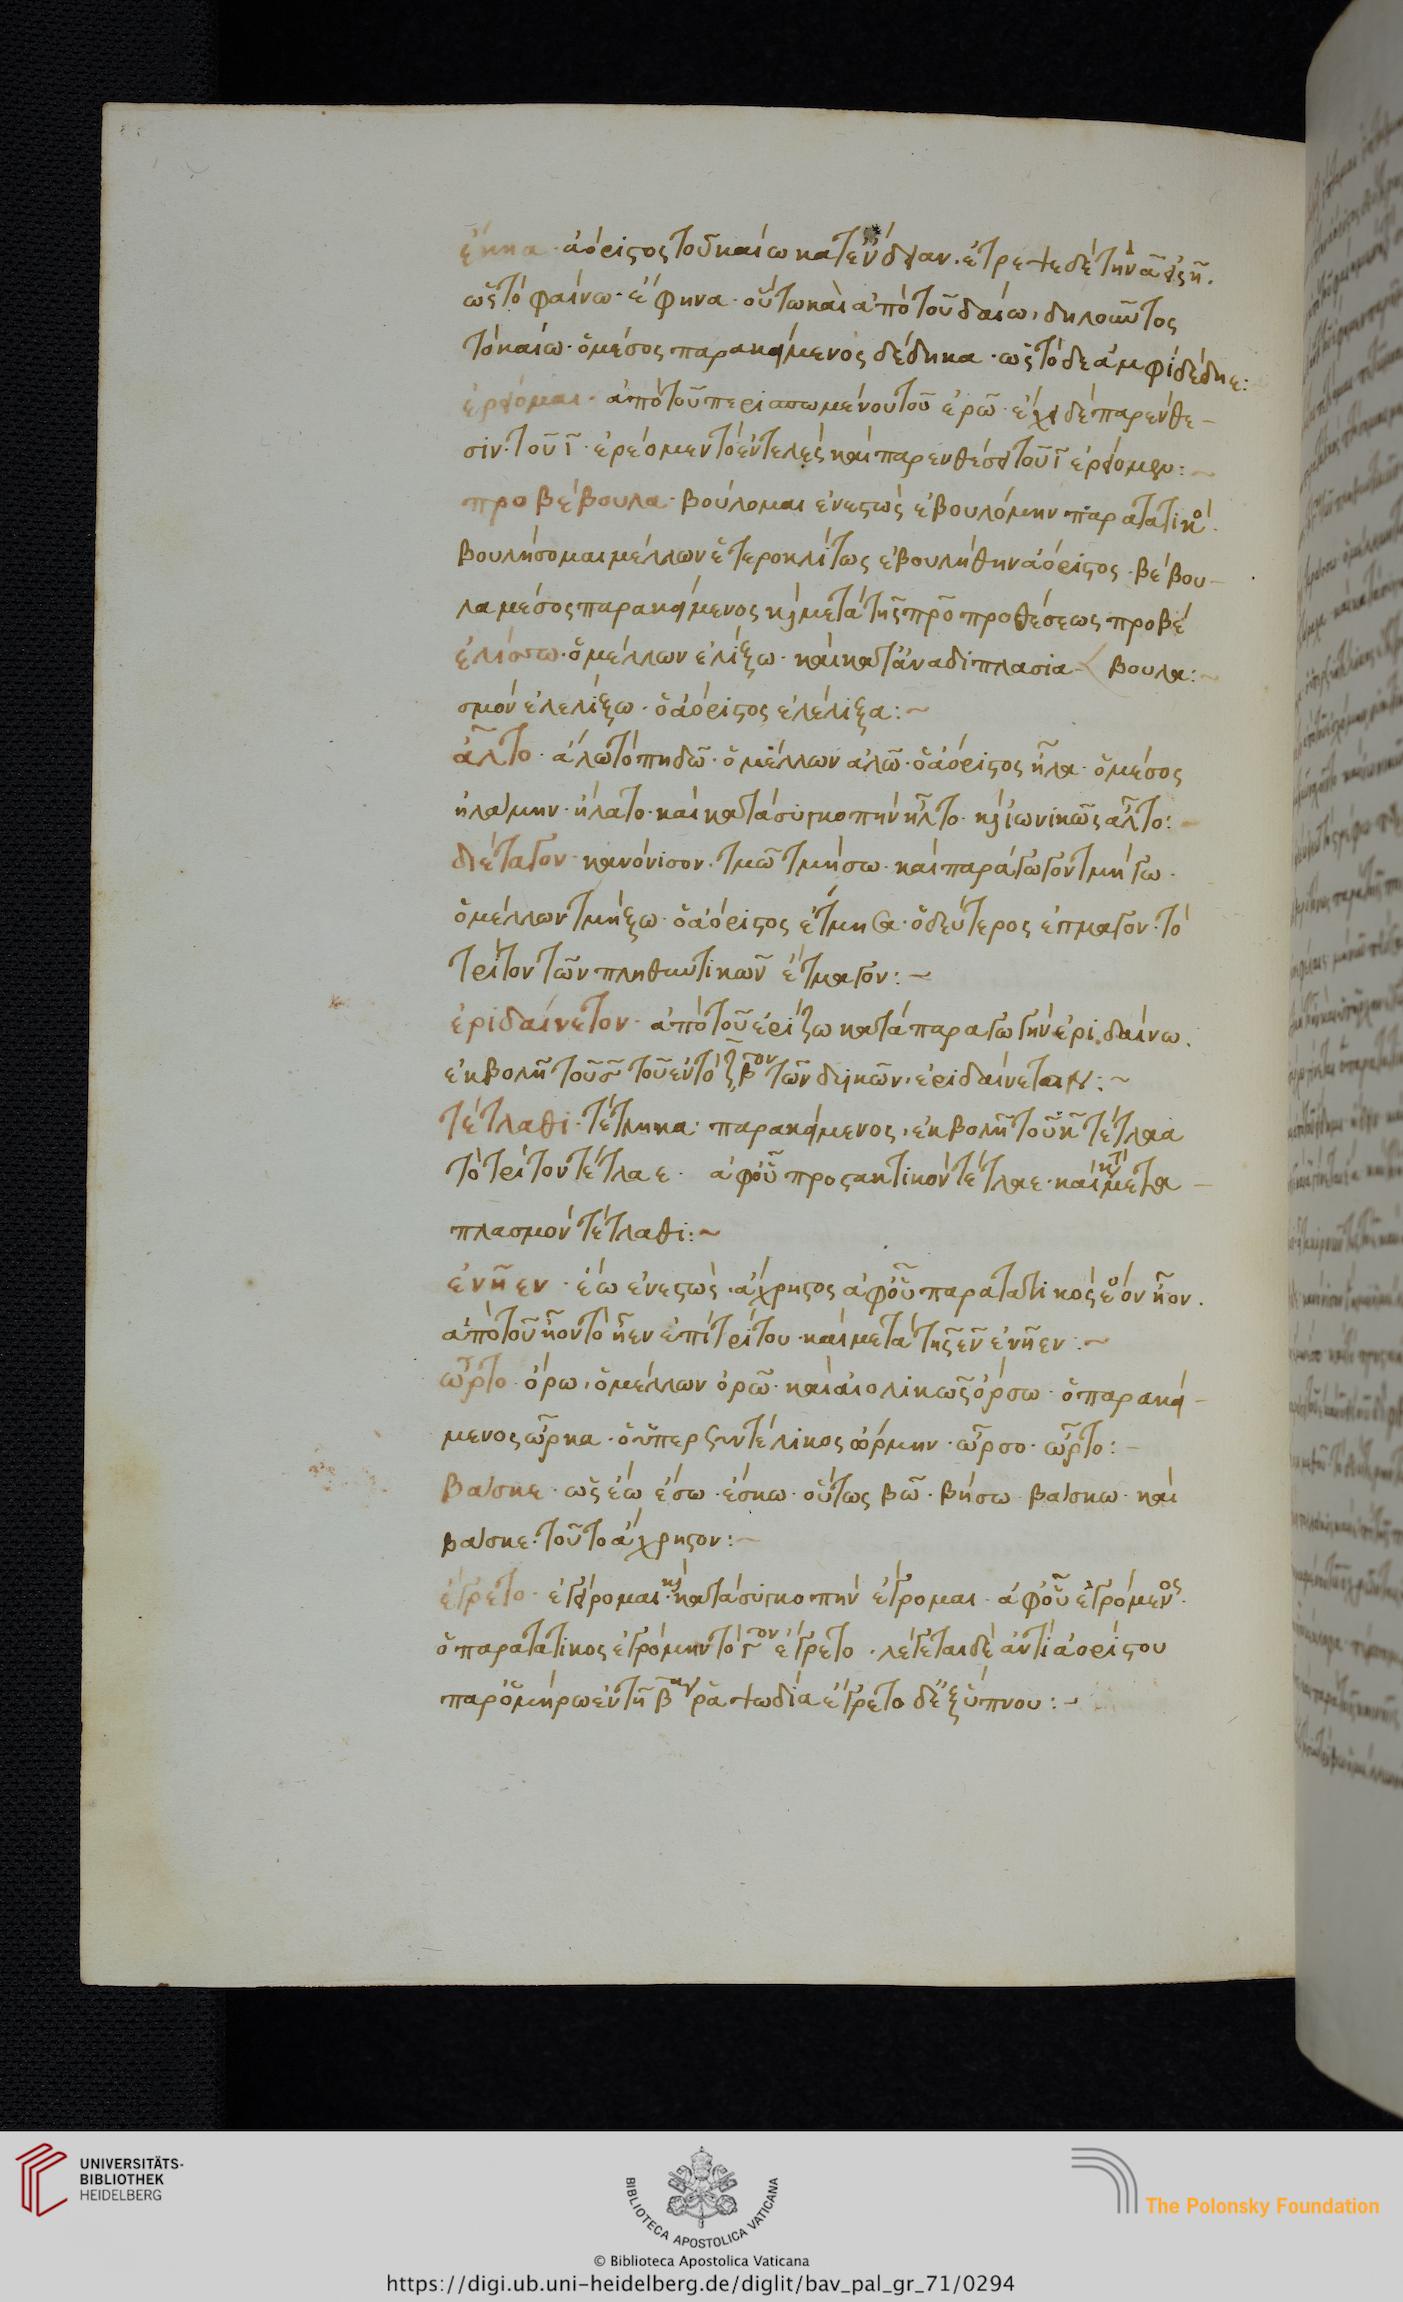 ἔκηα · ἀόριστος τοῦ καίω κατ' ἔνδειαν · ἔτρεψε δὲ τὴν α εἰς η.
ὡς τὸ φαίνω · ἔφηνα · οὕτω καὶ ἀπὸ τοῦ δαίω, δηλοῦντος
τὸ καίω · ὁ μέσος παρακείμενος δέδηκα · ὡς τὸ δε ἀμφιδέδηε:
ἐρείομαι · ἀπὸ τοῦ περισπωμένου τοῦ ἐρῶ · ἔχει δὲ παρένθε-
σιν τοῦ ϊ · ἐρέομεν τὸ ἐντελές καὶ παρενθέσει τοῦ ϊ ἐρείομεν:~
προβέβουλα · βούλομαι ἐνεστώς ἐβουλόμην παρατατικό.
βουλήσομαι μέλλων ἑτεροκλίτως ἐβουλήθην ἀόριστος · βέβου-
λα μέσος παρακείμενος κὶ μετὰ τῆς πρὸ προθέσεως προβέ
ἑλίσσω · ὁ μέλλων ἑλίξω · καὶ κατ' ἀναδιπλασια- βουλα:~
σμόν ἐλελίξω · ὁ ἀόριστος ἐλέλιξα:~
ἆλτο · ἅλω τὸ πηδῶ · ὁ μέλλων ἁλῶ · ὁ ἀόριστος ἧλα · ὁ μέσος
ἡλάμην · ἥλατο · καὶ κατὰ συγκοπήν ἦλτο · κὶ ἰωνικῶς ἆλτο:
διέταγον · κανόνισον · τμῶ τμήσω · καὶ παράγωγον τμήγω ·
ὁ μέλλων τμήξω · ὁ ἀόριστος ἔτμηξα · ὁ δεύτερος ἔτμαγον · τὸ
τρίτον τῶν πληθυντικῶν ἔτμαγον:~
ἐριδαίνετον · ἀπὸ τοῦ ἐρίζω κατὰ παραγωγήν ἐριδαίνω.
ἐκβολῇ τοῦ σ τοῦ ἐν τῷ ζ βον τῶν δυικῶν, ἐριδαίνετον:~
τέτλαθι · τέτληκα · παρακείμενος, ἐκβολῇ τοῦ κ τέτλαα
τὸ τρίτον τέτλαε · ἀφ' οὗ προστακτικόν τέτλαε · καὶ κατὰ μετα-
πλασμόν τέτλαθι:~
ἐνῆεν · ἔω ἐνεστώς · ἄχρηστος ἀφ' οὗ παρατατικός ἔον ἦον.
ἀπὸ τοῦ ἦον τὸ ἦεν ἐπὶ τρίτου · καὶ μετὰ τῆς ἐν ἐνῆεν:~
ὦρτο · ὄρω, ὁ μέλλων ὀρῶ · καὶ αἰολικῶς ὄρσω · ὁ παρακεί-
μενος ὦρκα · ὁ ὑπερσυντέλικος ὤρμην · ὦρσο · ὦρτο:-
βάσκε · ὡς ἔω ἔσω · ἔσκω · οὕτως βῶ · βήσω βάσκω · καὶ
βάσκε · τοῦτο ἄχρηστον:~
ἔγρετο · ἐγείρομαι · κὶ κατὰ συγκοπήν ἔγρομαι · ἀφ' οὗ ἐγρόμενος.
ὁ παρατατικος ἐγρόμην τὸ γον ἔγρετο · λέγεται δὲ ἀντὶ ἀορίστου
παρ' ὁμήρω ἐν τῇ β ραψωδία ἔγρετο δ' ἐξ ὕπνου:~
UNIVERSITÄTS-
BIBLIOTHEK
HEIDELBERG
BIBLIOTECA APOSTOLICA VATICANA
The Polonsky Foundation
© Biblioteca Apostolica Vaticana
https://digi.ub.uni-heidelberg.de/diglit/bav_pal_gr_71/0294